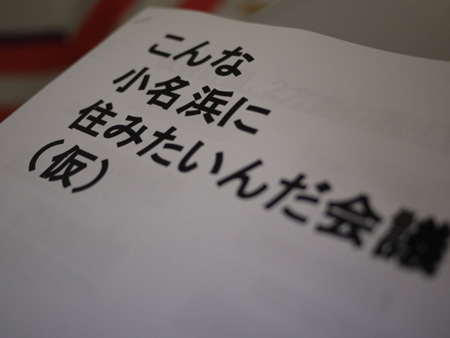 こんな
小名浜に
住みたいんだ会議
（仮）